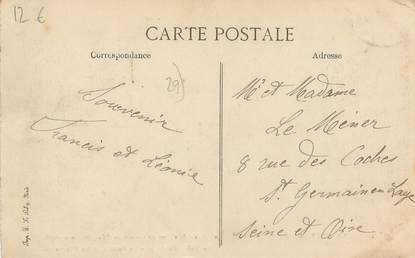 12 €
CARTE POSTALE
Correspondance
Adresse
29)
Souvenir
Francis et Léonie
Mr et Madame
Le Mener
8 rue des Coches
St Germain en Laye
Seine et Oise